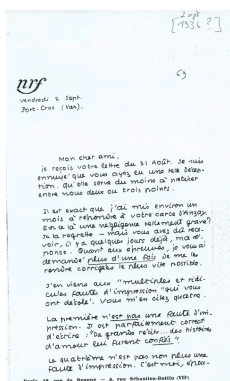 [2 sept
1936 ?]
nrf
69
vendredi 2 Sept.
Port-Cros (Var).
Mon cher ami,
je reçois votre lettre du 31 Août. Je suis
ennuyé que vous ayez eu une telle décep-
tion. qu'elle serve du moins à préciser
entre nous deux ou trois points.
Il est exact que j'ai mis environ un
mois à répondre à votre carte d'
Est-ce là une négligence tellement grave?
Je la regrette - mais vous avez dû rece-
voir, il y a quelques jours déjà, ma ré-
ponse. Quant aux épreuves, je vous ai
demandé plus d'une fois de me les
rendre corrigées le plus vite possible.
J'en viens aux "multiples et ridi-
cules fautes d'impression" qui vous
ont désolé. Vous m'en citez quatre.
La première n'est pas une faute d'im-
pression. Il est parfaitement correct
d'écrire: "De grands récits... des histoires
d'amour lui furent contés".
La quatrième n'est pas non plus une
faute d'impression. C'est moi,